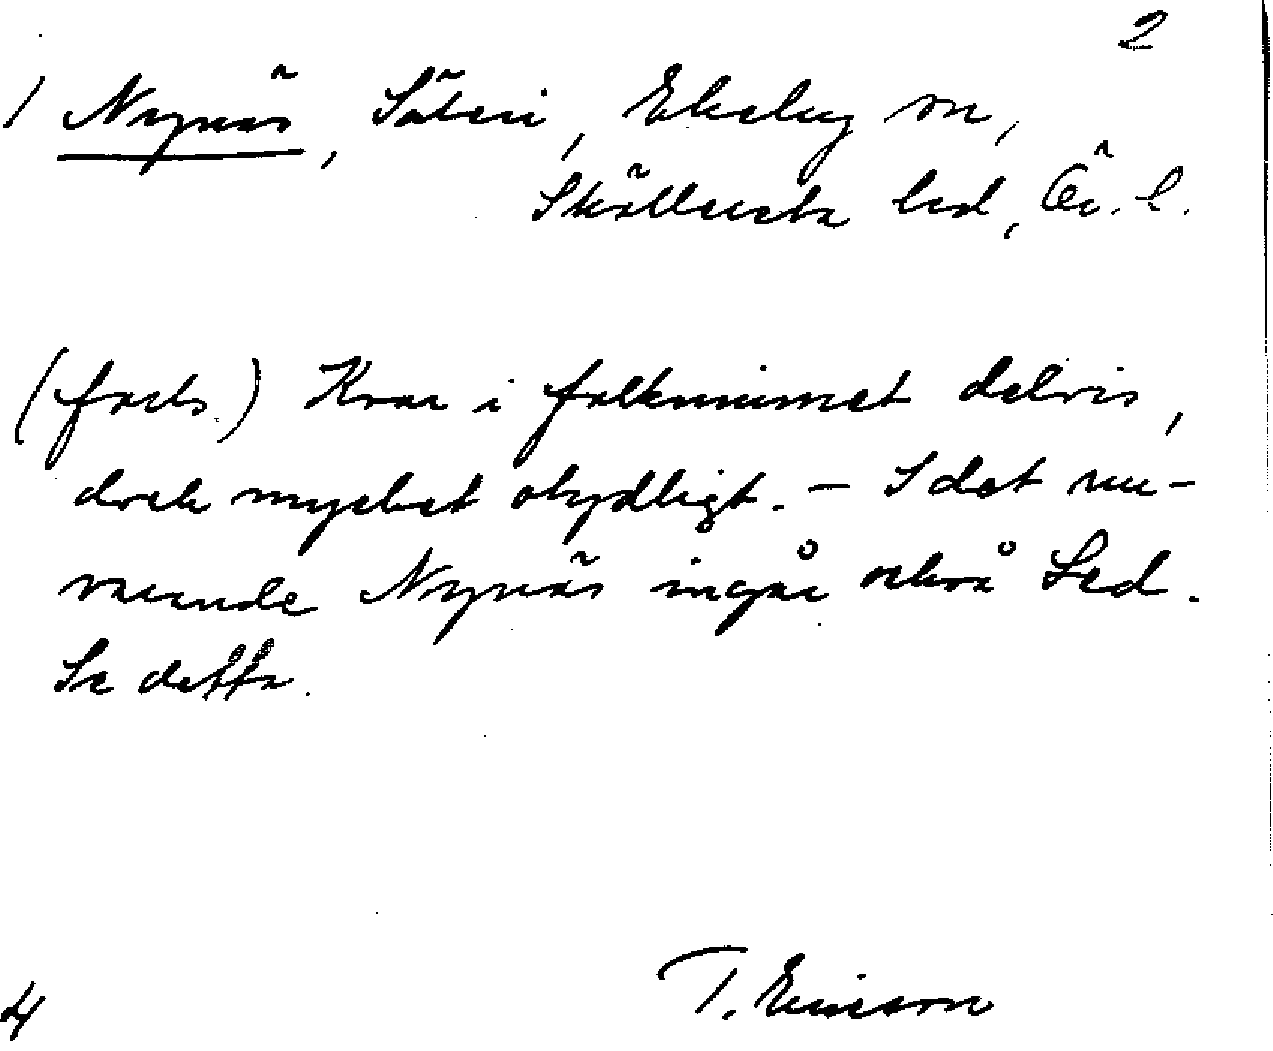 2
1 Nynäs, Säteri, Ekeby sn,
Skyllersta hd, Ör. l.
(forts.) Kvar i folkminnet delvis,
dock mycket otydligt. - I det nu-
varande Nynäs ingår också Sed.
Se detta.
T. Ericson
4